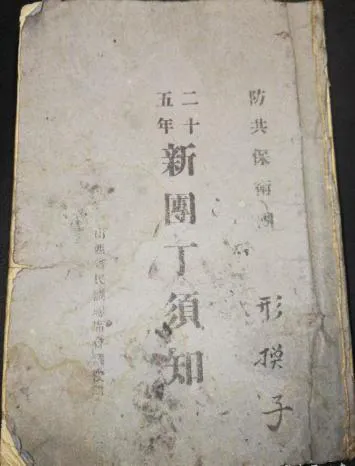 防共保衛團
形摸子
二十五年
新團丁須知
山西省民訓幹部會